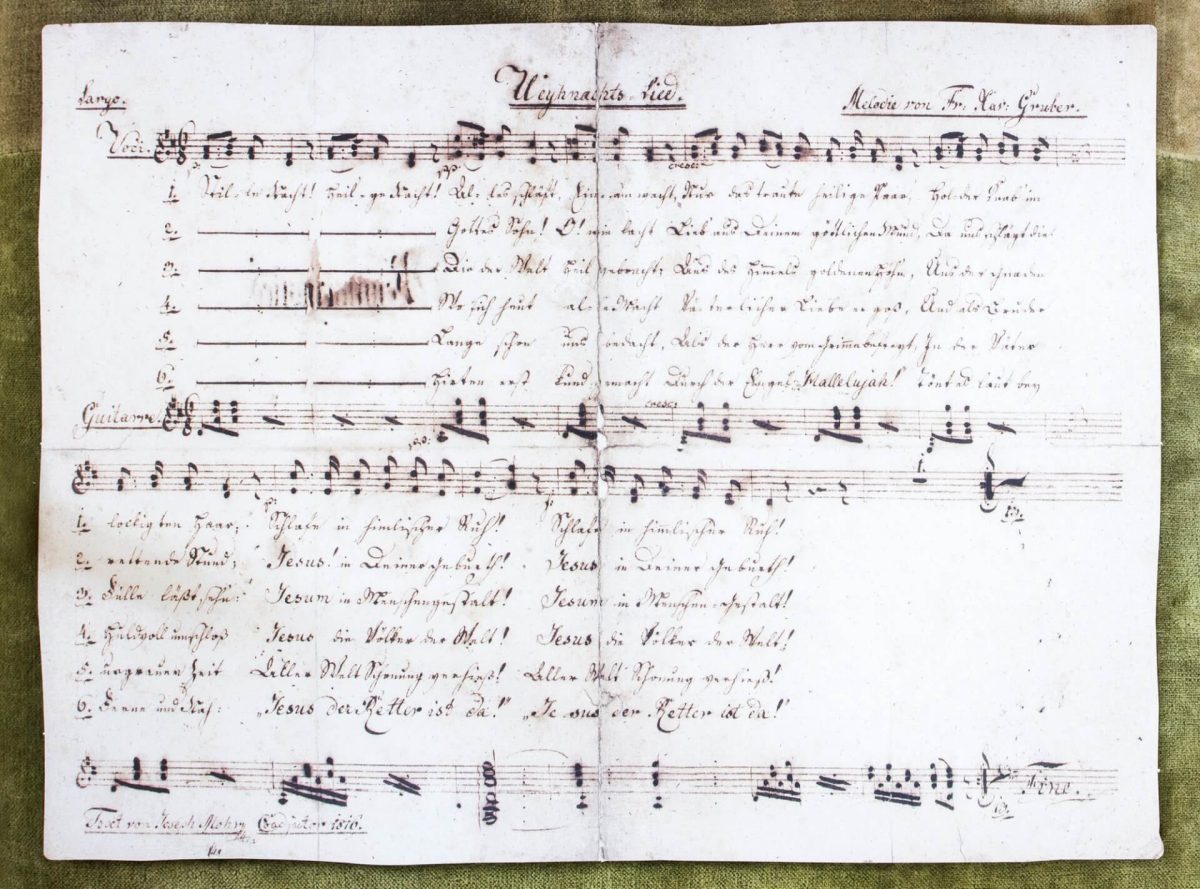 Weyhnachts-Lied.
Largo.
Melodie von Fr: Xav: Gruber.
Voci.
pp:
cresc:
1. Stil-le Nacht! Heil-ge Nacht! Al-les schläft, Einsam wacht, Nur das traute heilige Paar, Holder Knab' im
2. Gottes Sohn! O! wie lacht Lieb aus Deinem göttlichen Mund, Da uns schlägt die
3. Die der Welt Heil gebracht: Aus des Himmels goldenen Höhn, Uns der Gnaden
4. Wo sich heut alle Macht Väterlicher Liebe ergoß, Und als Bruder
5. Lange schon uns bedacht, Als der Herr vom Grimme befreyt, In der Väter
6. Hirten erst kund gemacht Durch der Engel „Hallelujah!" Tönt es laut bey
cresc:
Guitarre.
pp:
1. lockigten Haar; Schlafe in himlischer Ruh! Schlafe in himlischer Ruh!
2. rettende Stund; Jesus! in Deiner Geburth! Jesus in Deiner Geburth!
3. Fülle läßt sehn: Jesum in Menschengestalt! Jesum in Menschen-Gestalt!
4. Huldvoll umschloß Jesus die Völker der Welt! Jesus die Völker der Welt!
5. urgrauer Zeit Aller Welt Schonung verhieß! Aller Welt Schonung verhieß!
6. Ferne und Nah: „Jesus der Retter ist da!" „Jesus der Retter ist da!"
Fine.
Text von Joseph Mohr Coadjutor 1816.